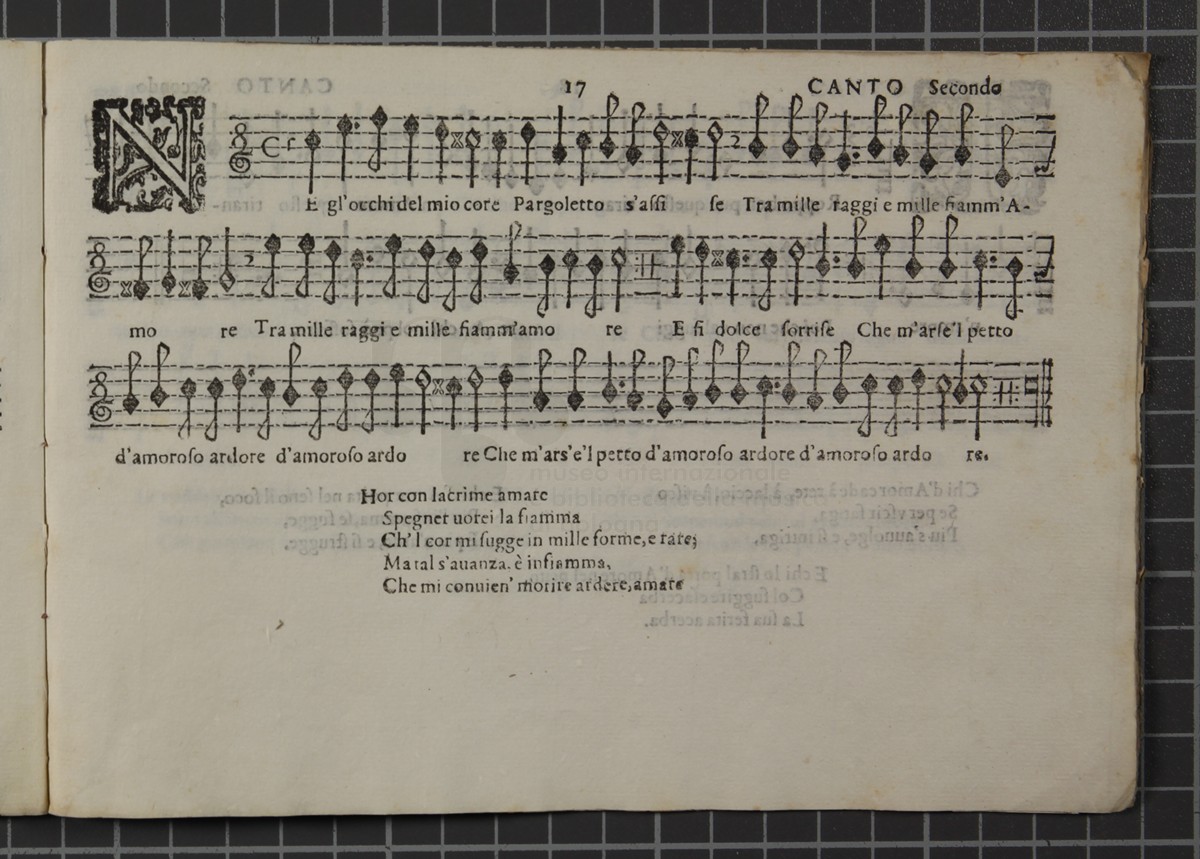 17 CANTO Secondo
NE gl'occhi del mio core Pargoletto s'assi se Tra mille raggi e mille fiamm'A-
mo re Tra mille raggi e mille fiamm'amo re E si dolce sorrise Che m'arse'l petto
d'amoroso ardore d'amoroso ardo re Che m'ars'e'l petto d'amoroso ardore d'amoroso ardo re.
Hor con lacrime amare
Spegner uorei la fiamma
Ch'l cor mi sugge in mille forme, e rare;
Ma tal s'auanza. è infiamma,
Che mi conuien' morire ardere, amare
museo internazionale